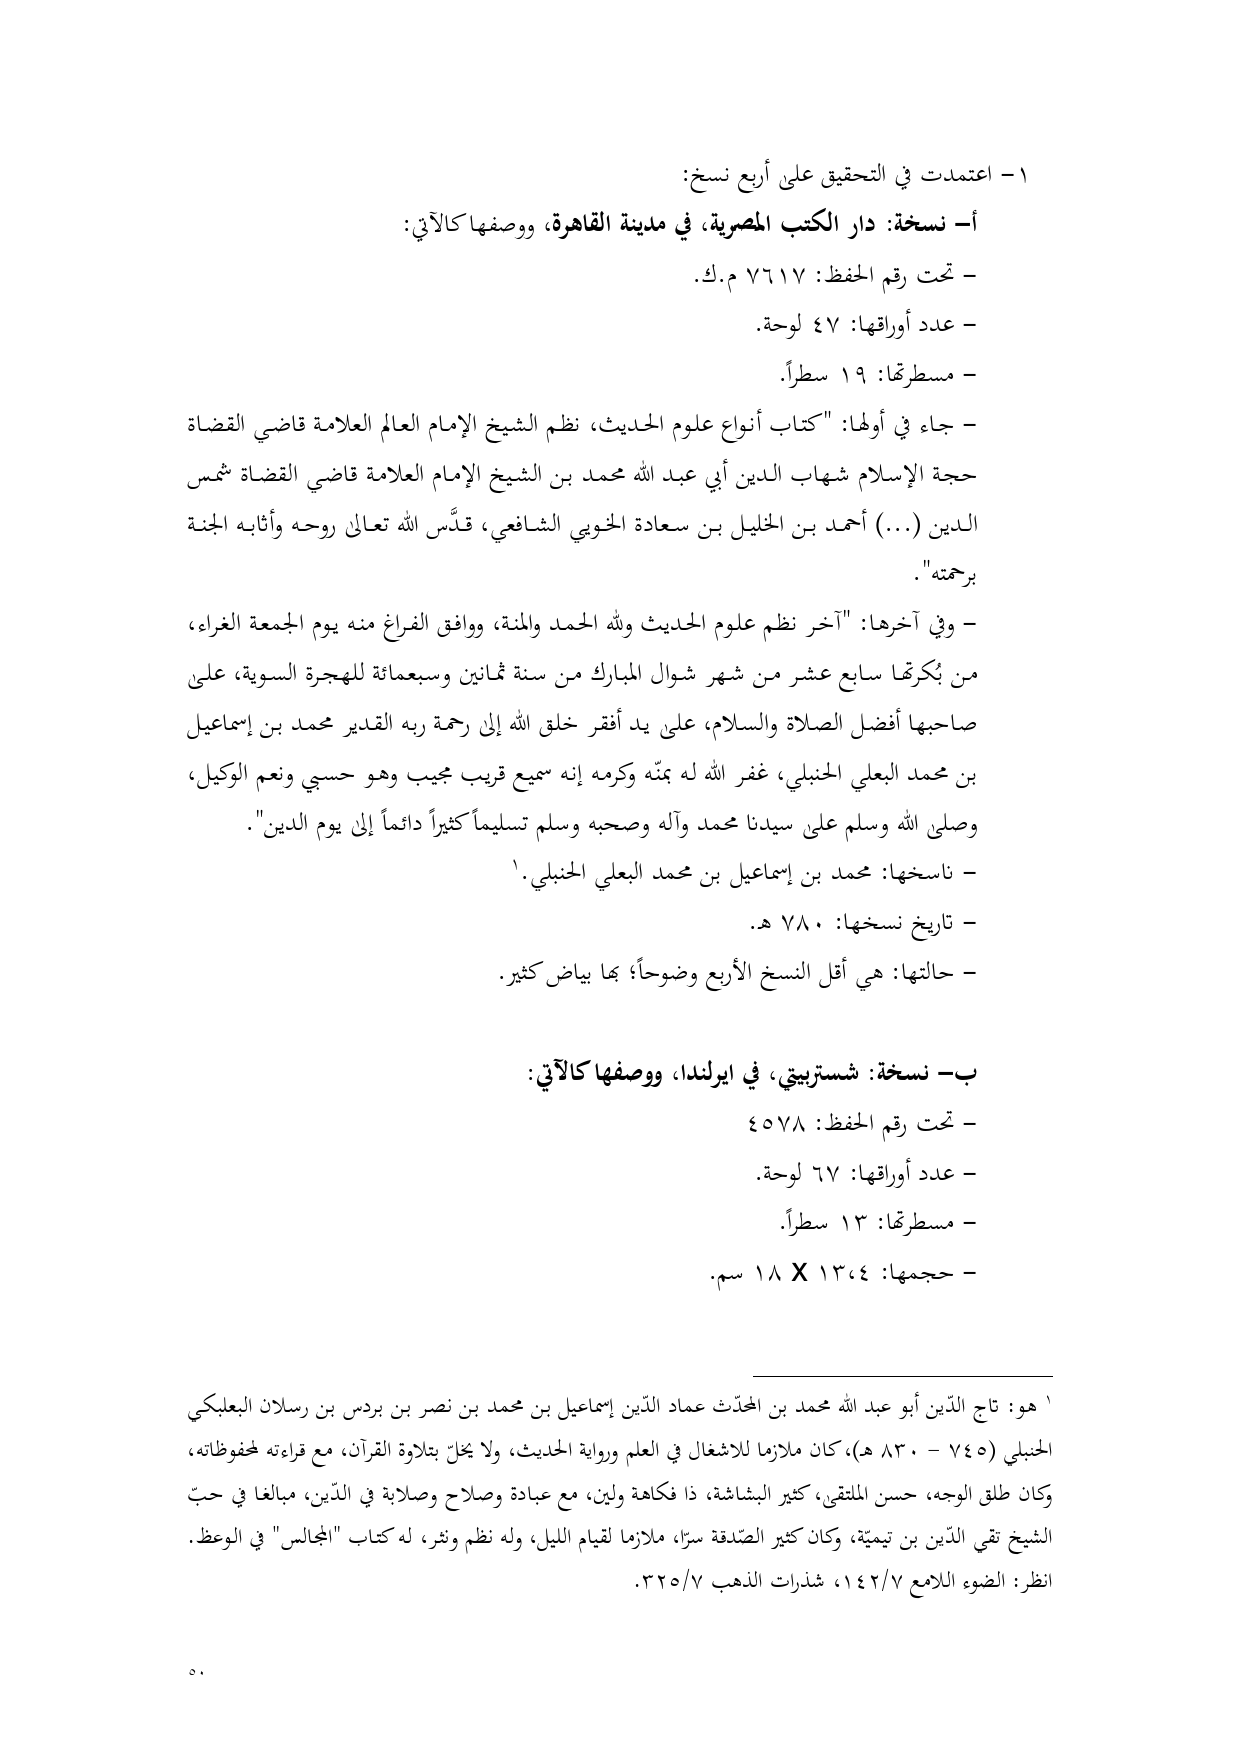 ١- اعتمدت في التحقيق على أربع نسخ:
أ- نسخة: دار الكتب المصرية، في مدينة القاهرة، ووصفها كالآتي:
- تحت رقم الحفظ: ٧٦١٧ م.ك.
- عدد أوراقها: ٤٧ لوحة.
- مسطرتها: ١٩ سطراً.
- جاء في أولها: "كتاب أنواع علوم الحديث، نظم الشيخ الإمام العالم العلامة قاضي القضاة
حجة الإسلام شهاب الدين أبي عبد الله محمد بن الشيخ الإمام العلامة قاضي القضاة شمس
الدين (...) أحمد بن الخليل بن سعادة الخويي الشافعي، قدَّس الله تعالى روحه وأثابه الجنة
برحمته".
- وفي آخرها: "آخر نظم علوم الحديث ولله الحمد والمنة، ووافق الفراغ منه يوم الجمعة الغراء،
من بُكرتها سابع عشر من شهر شوال المبارك من سنة ثمانين وسبعمائة للهجرة السوية، على
صاحبها أفضل الصلاة والسلام، على يد أفقر خلق الله إلى رحمة ربه القدير محمد بن إسماعيل
بن محمد البعلي الحنبلي، غفر الله له بمنّه وكرمه إنه سميع قريب مجيب وهو حسبي ونعم الوكيل،
وصلى الله وسلم على سيدنا محمد وآله وصحبه وسلم تسليماً كثيراً دائماً إلى يوم الدين".
- ناسخها: محمد بن إسماعيل بن محمد البعلي الحنبلي.١
- تاريخ نسخها: ٧٨٠ هـ.
- حالتها: هي أقل النسخ الأربع وضوحاً؛ بها بياض كثير.
ب- نسخة: شستربيتي، في ايرلندا، ووصفها كالآتي:
- تحت رقم الحفظ: ٤٥٧٨
- عدد أوراقها: ٦٧ لوحة.
- مسطرتها: ١٣ سطراً.
- حجمها: ١٣،٤ X ١٨ سم.
١ هو: تاج الدّين أبو عبد الله محمد بن المحدّث عماد الدّين إسماعيل بن محمد بن نصر بن بردس بن رسلان البعلبكي
الحنبلي (٧٤٥ - ٨٣٠ هـ)، كان ملازما للاشغال في العلم ورواية الحديث، ولا يخلّ بتلاوة القرآن، مع قراءته لمحفوظاته،
وكان طلق الوجه، حسن الملتقى، كثير البشاشة، ذا فكاهة ولين، مع عبادة وصلاح وصلابة في الدّين، مبالغا في حبّ
الشيخ تقي الدّين بن تيميّة، وكان كثير الصّدقة سرّا، ملازما لقيام الليل، وله نظم ونثر، له كتاب "المجالس" في الوعظ.
انظر: الضوء اللامع ١٤٢/٧، شذرات الذهب ٣٢٥/٧.
٥٠